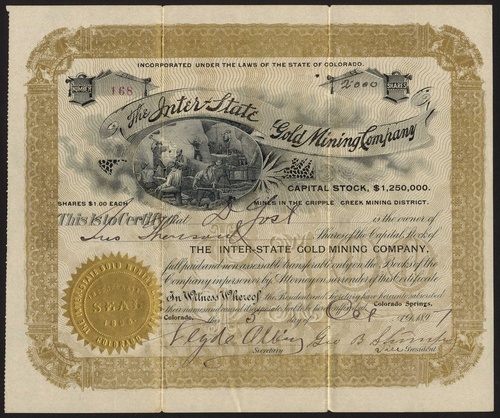 INCORPORATED UNDER THE LAWS OF THE STATE OF COLORADO.
NUMBER
168
2000
SHARES
The Inter-State
Gold Mining Company
CAPITAL STOCK, $1,250,000.
SHARES $1.00 EACH
MINES IN THE CRIPPLE CREEK MINING DISTRICT.
This Is to Certify that D Jost is the owner of
Two Thousand Shares of the Capital Stock of
THE INTER-STATE GOLD MINING COMPANY,
full paid and non-assessable transferable only on the Books of the
Company in person or by Attorney on surrender of this Certificate
In Witness Whereof the President and Secretary have hereunto subscribed
their names and caused the corporate Seal to be
Colorado Springs,
Colorado, 189
Secretary
Geo B
Vice President
SEAL
COLORADO